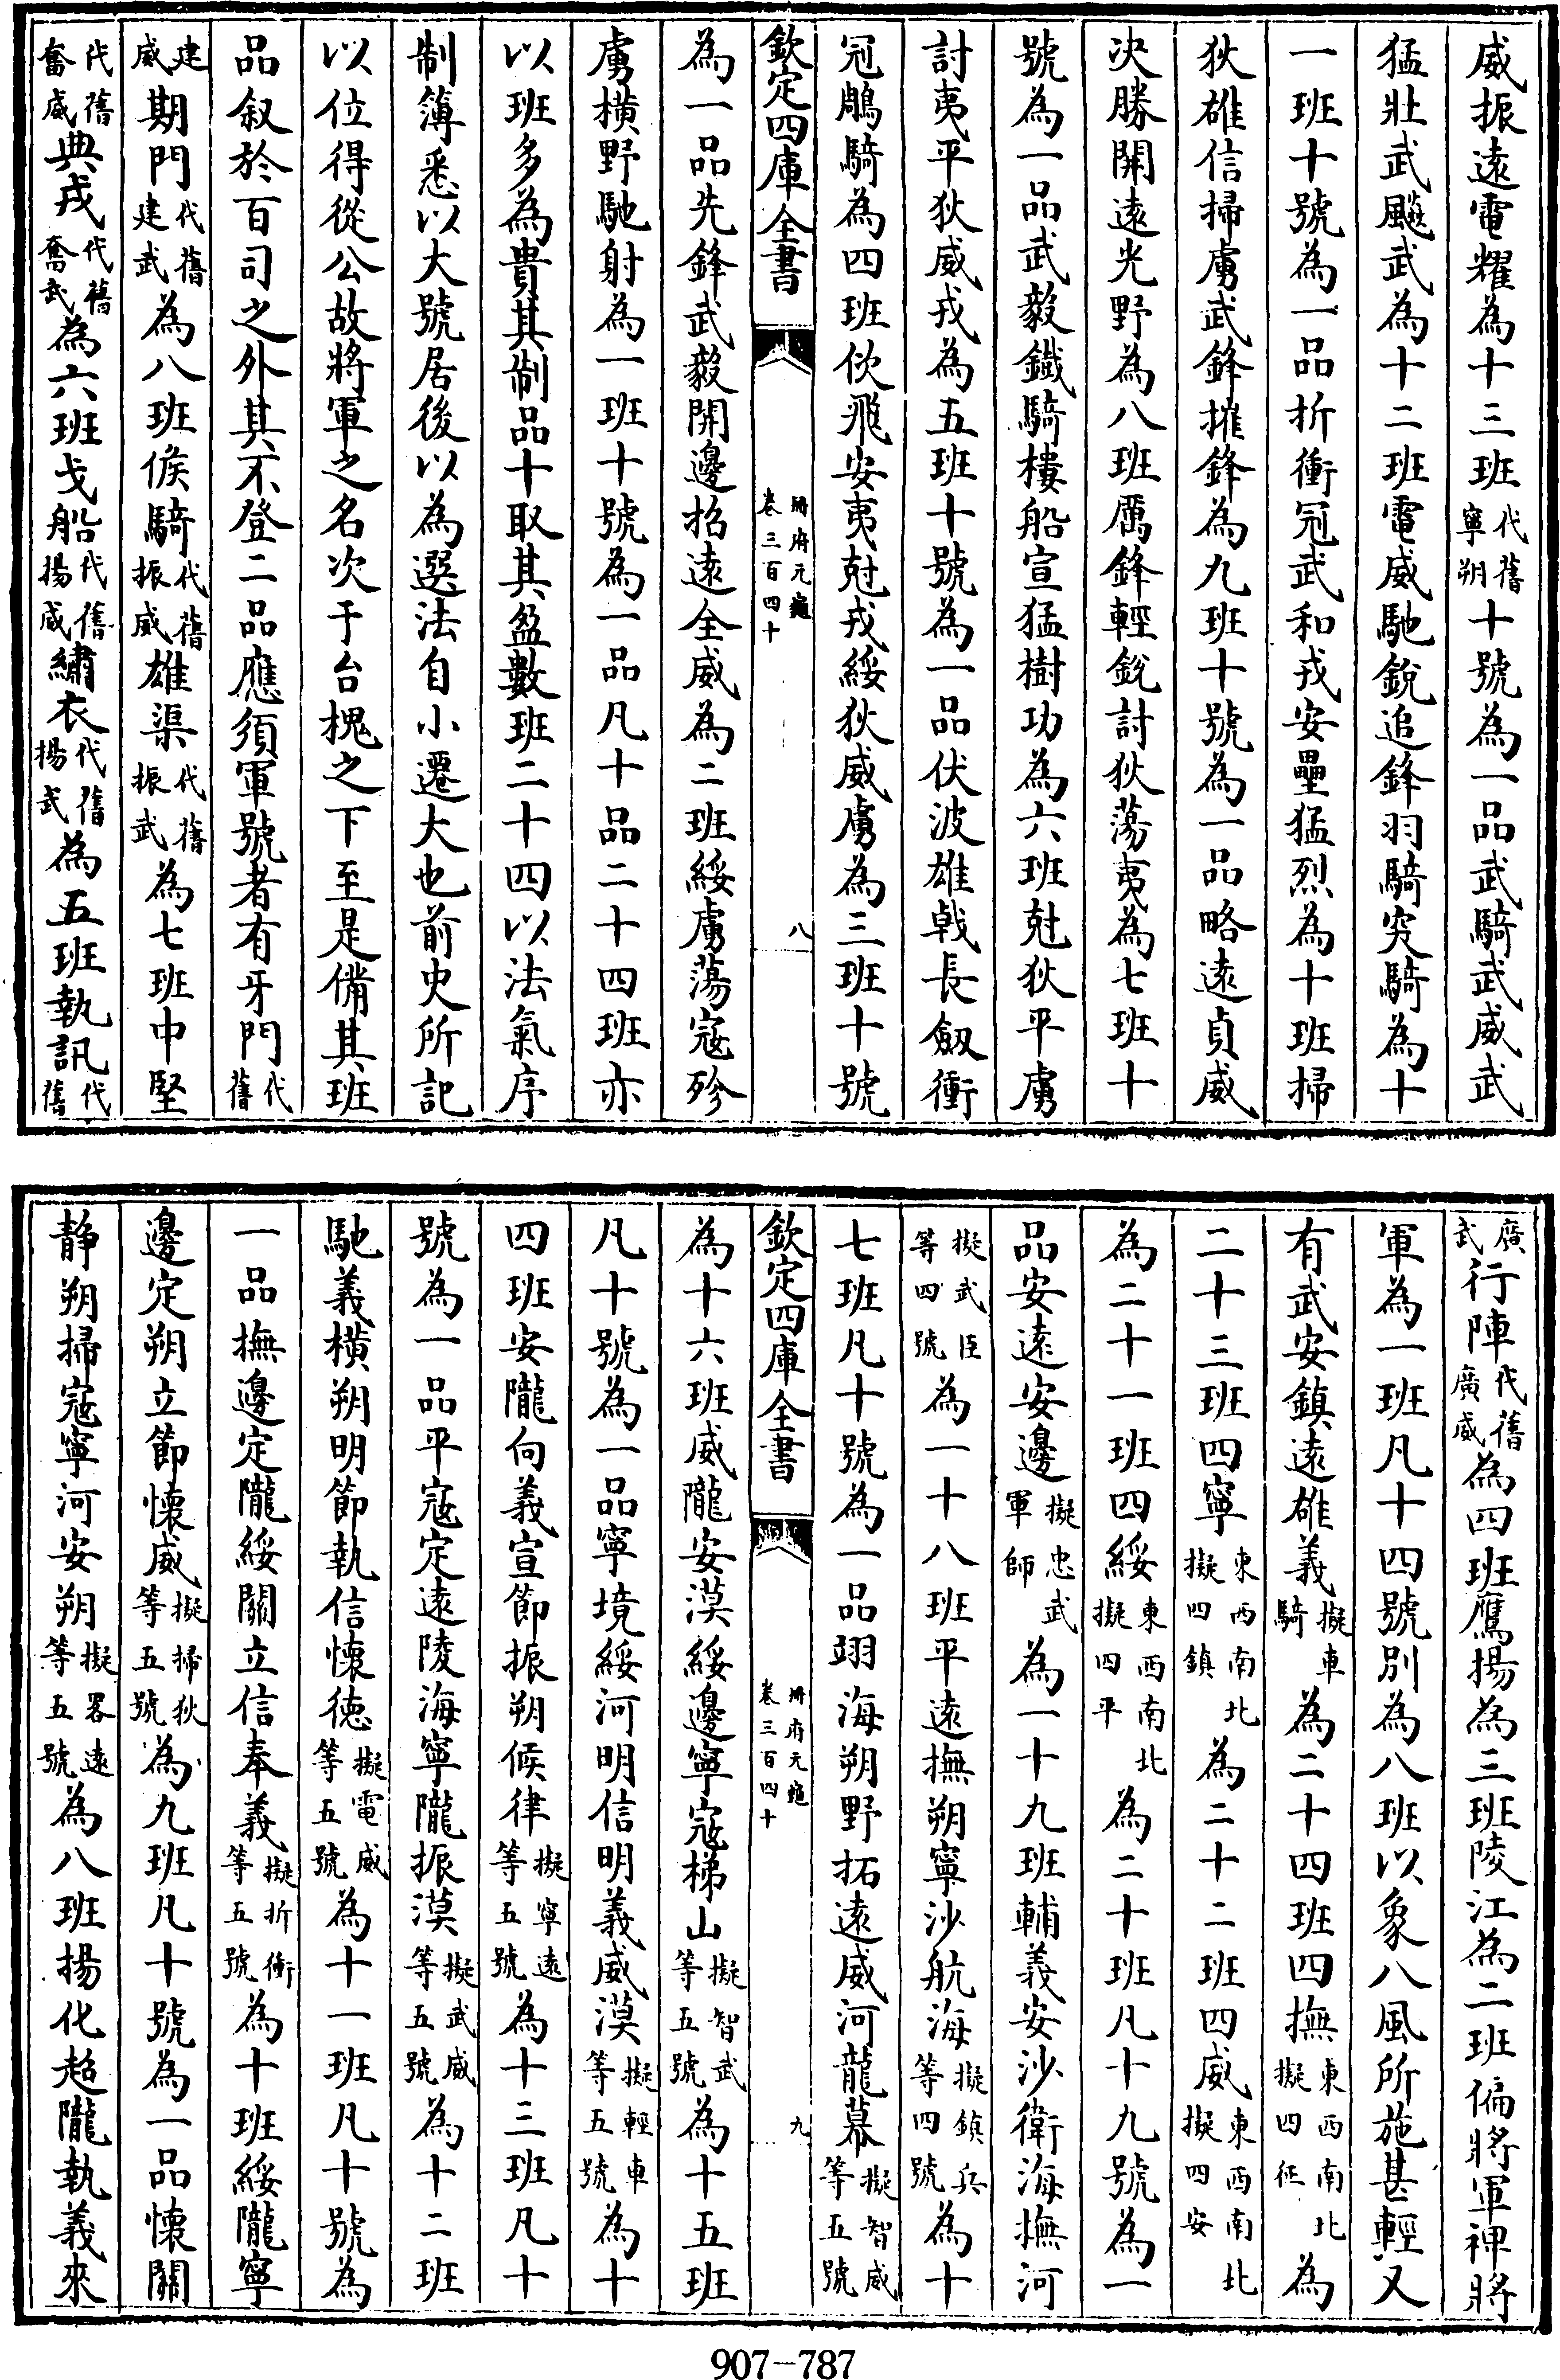 威振遠電耀為十三班代舊寧朔十號為一品武騎武威武
猛壯武飈武為十二班電威馳銳追鋒羽騎突騎為十
一班十號為一品折衝冠武和戎安壘猛烈為十班掃
狄雄信掃虜武鋒摧鋒為九班十號為一品略遠貞威
決勝開遠光野為八班厲鋒輕銳討狄蕩夷為七班十
號為一品武毅鐵騎樓船宣猛樹功為六班尅狄平虜
討夷平狄威戎為五班十號為一品伏波雄戟長劔衝
冠鵰騎為四班佽飛安夷尅戎綏狄威虜為三班十號
欽定四庫全書 冊府元龜 卷三百四十 八
為一品先鋒武毅開邊招遠全威為二班綏虜蕩寇殄
虜橫野馳射為一班十號為一品凡十品二十四班亦
以班多為貴其制品十取其盈數班二十四以法氣序
制簿悉以大號居後以為選法自小遷大也前史所記
以位得從公故將軍之名次于台槐之下至是備其班
品叙於百司之外其不登二品應須軍號者有牙門代舊
建威期門代舊建武為八班候騎代舊振威雄渠代舊振武為七班中堅
代舊奮威典戎代舊奮武為六班戈船代舊揚威繡衣代舊揚武為五班執訊代舊
廣武行陣代舊廣威為四班鷹揚為三班陵江為二班偏將軍裨將
軍為一班凡十四號別為八班以象八風所施甚輕又
有武安鎮遠雄義擬車騎為二十四班四撫東西南北擬四征為
二十三班四寧東西南北擬四鎮為二十二班四威東西南北擬四安
為二十一班四綏東西南北擬四平為二十班凡十九號為一
品安遠安邊擬忠武軍師為一十九班輔義安沙衛海撫河
擬武臣等四號為一十八班平遠撫朔寧沙航海擬鎮兵等四號為十
七班凡十號為一品翊海朔野拓遠威河龍幕擬智威等五號
欽定四庫全書 冊府元龜 卷三百四十 九
為十六班威隴安漠綏邊寧寇梯山擬智武等五號為十五班
凡十號為一品寧境綏河明信明義威漠擬輕車等五號為十
四班安隴向義宣節振朔候律擬寧遠等五號為十三班凡十
號為一品平寇定遠陵海寧隴振漠擬武威等五號為十二班
馳義橫朔明節執信懷德擬電威等五號為十一班凡十號為
一品撫邊定隴綏關立信奉義擬折衝等五號為十班綏隴寧
邊定朔立節懷威擬掃狄等五號為九班凡十號為一品懷關
靜朔掃寇寧河安朔擬畧遠等五號為八班揚化超隴執義來
907-787